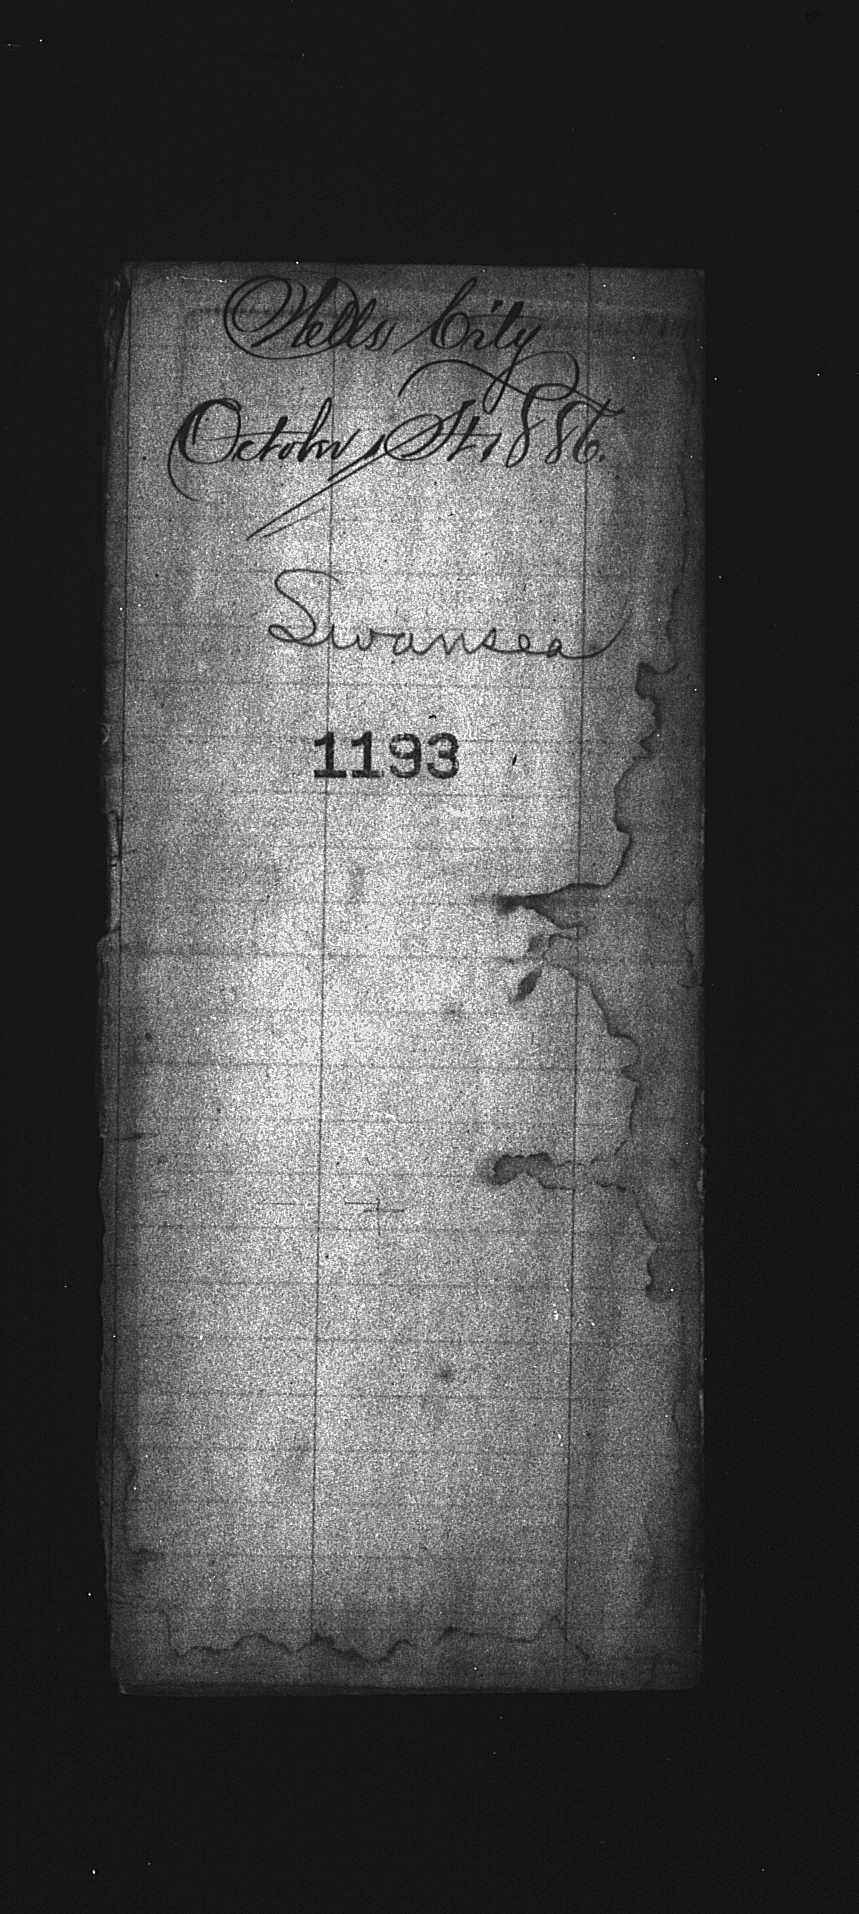 Wells City
October 1st, 1886.
Swansea
1193